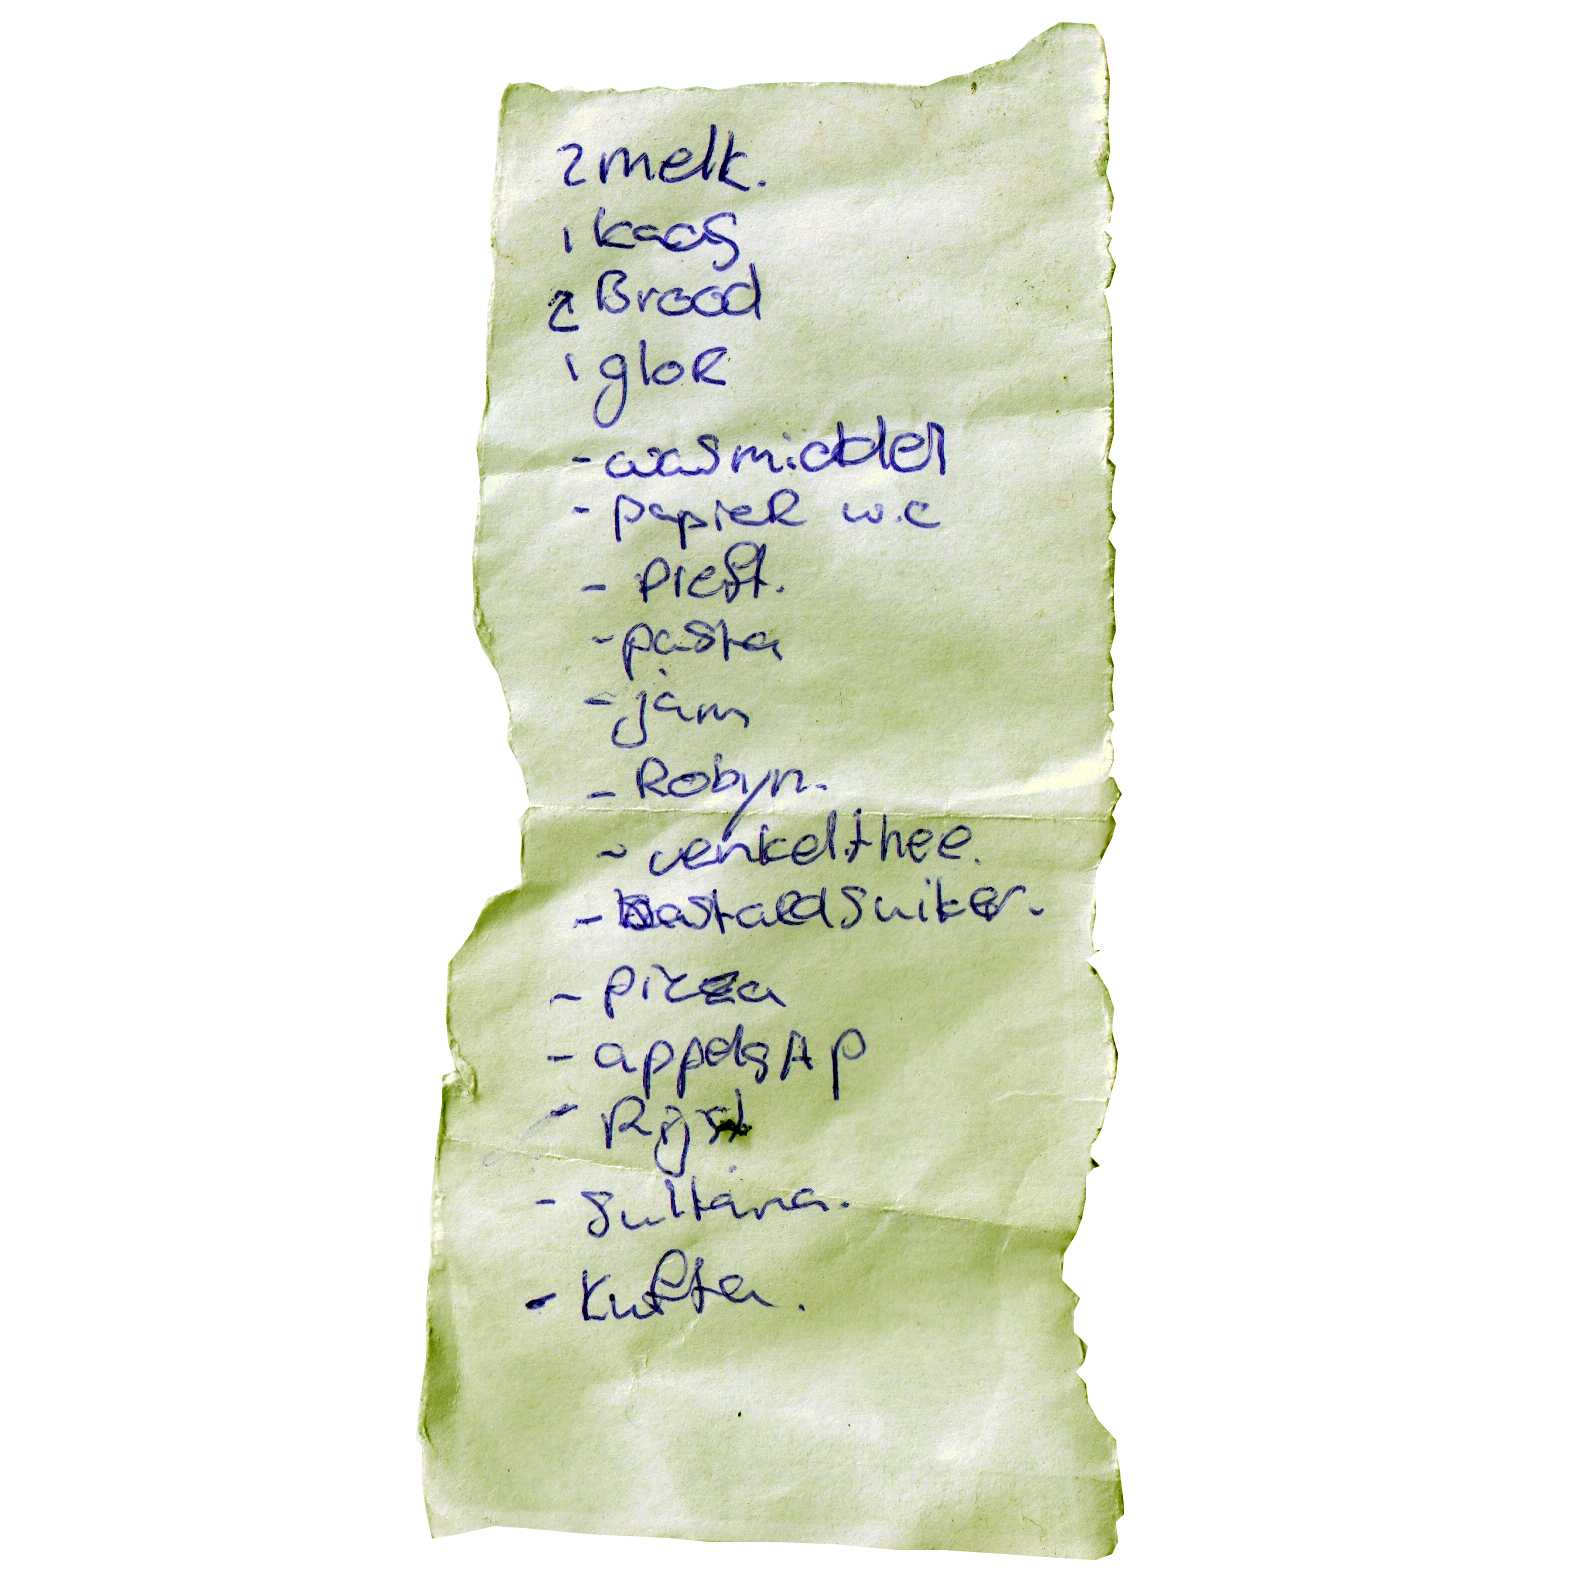 2 melk.
1 kaas
2 Brood
1 gloR
- wasmiddel
- papieR w.c
- Pleft.
- pasta
- jam
- Robyn.
- venkel.thee.
- bastaRdSuiker.
- pizza
- appelsAp
- Rijst
- Sultana.
- Kufta.